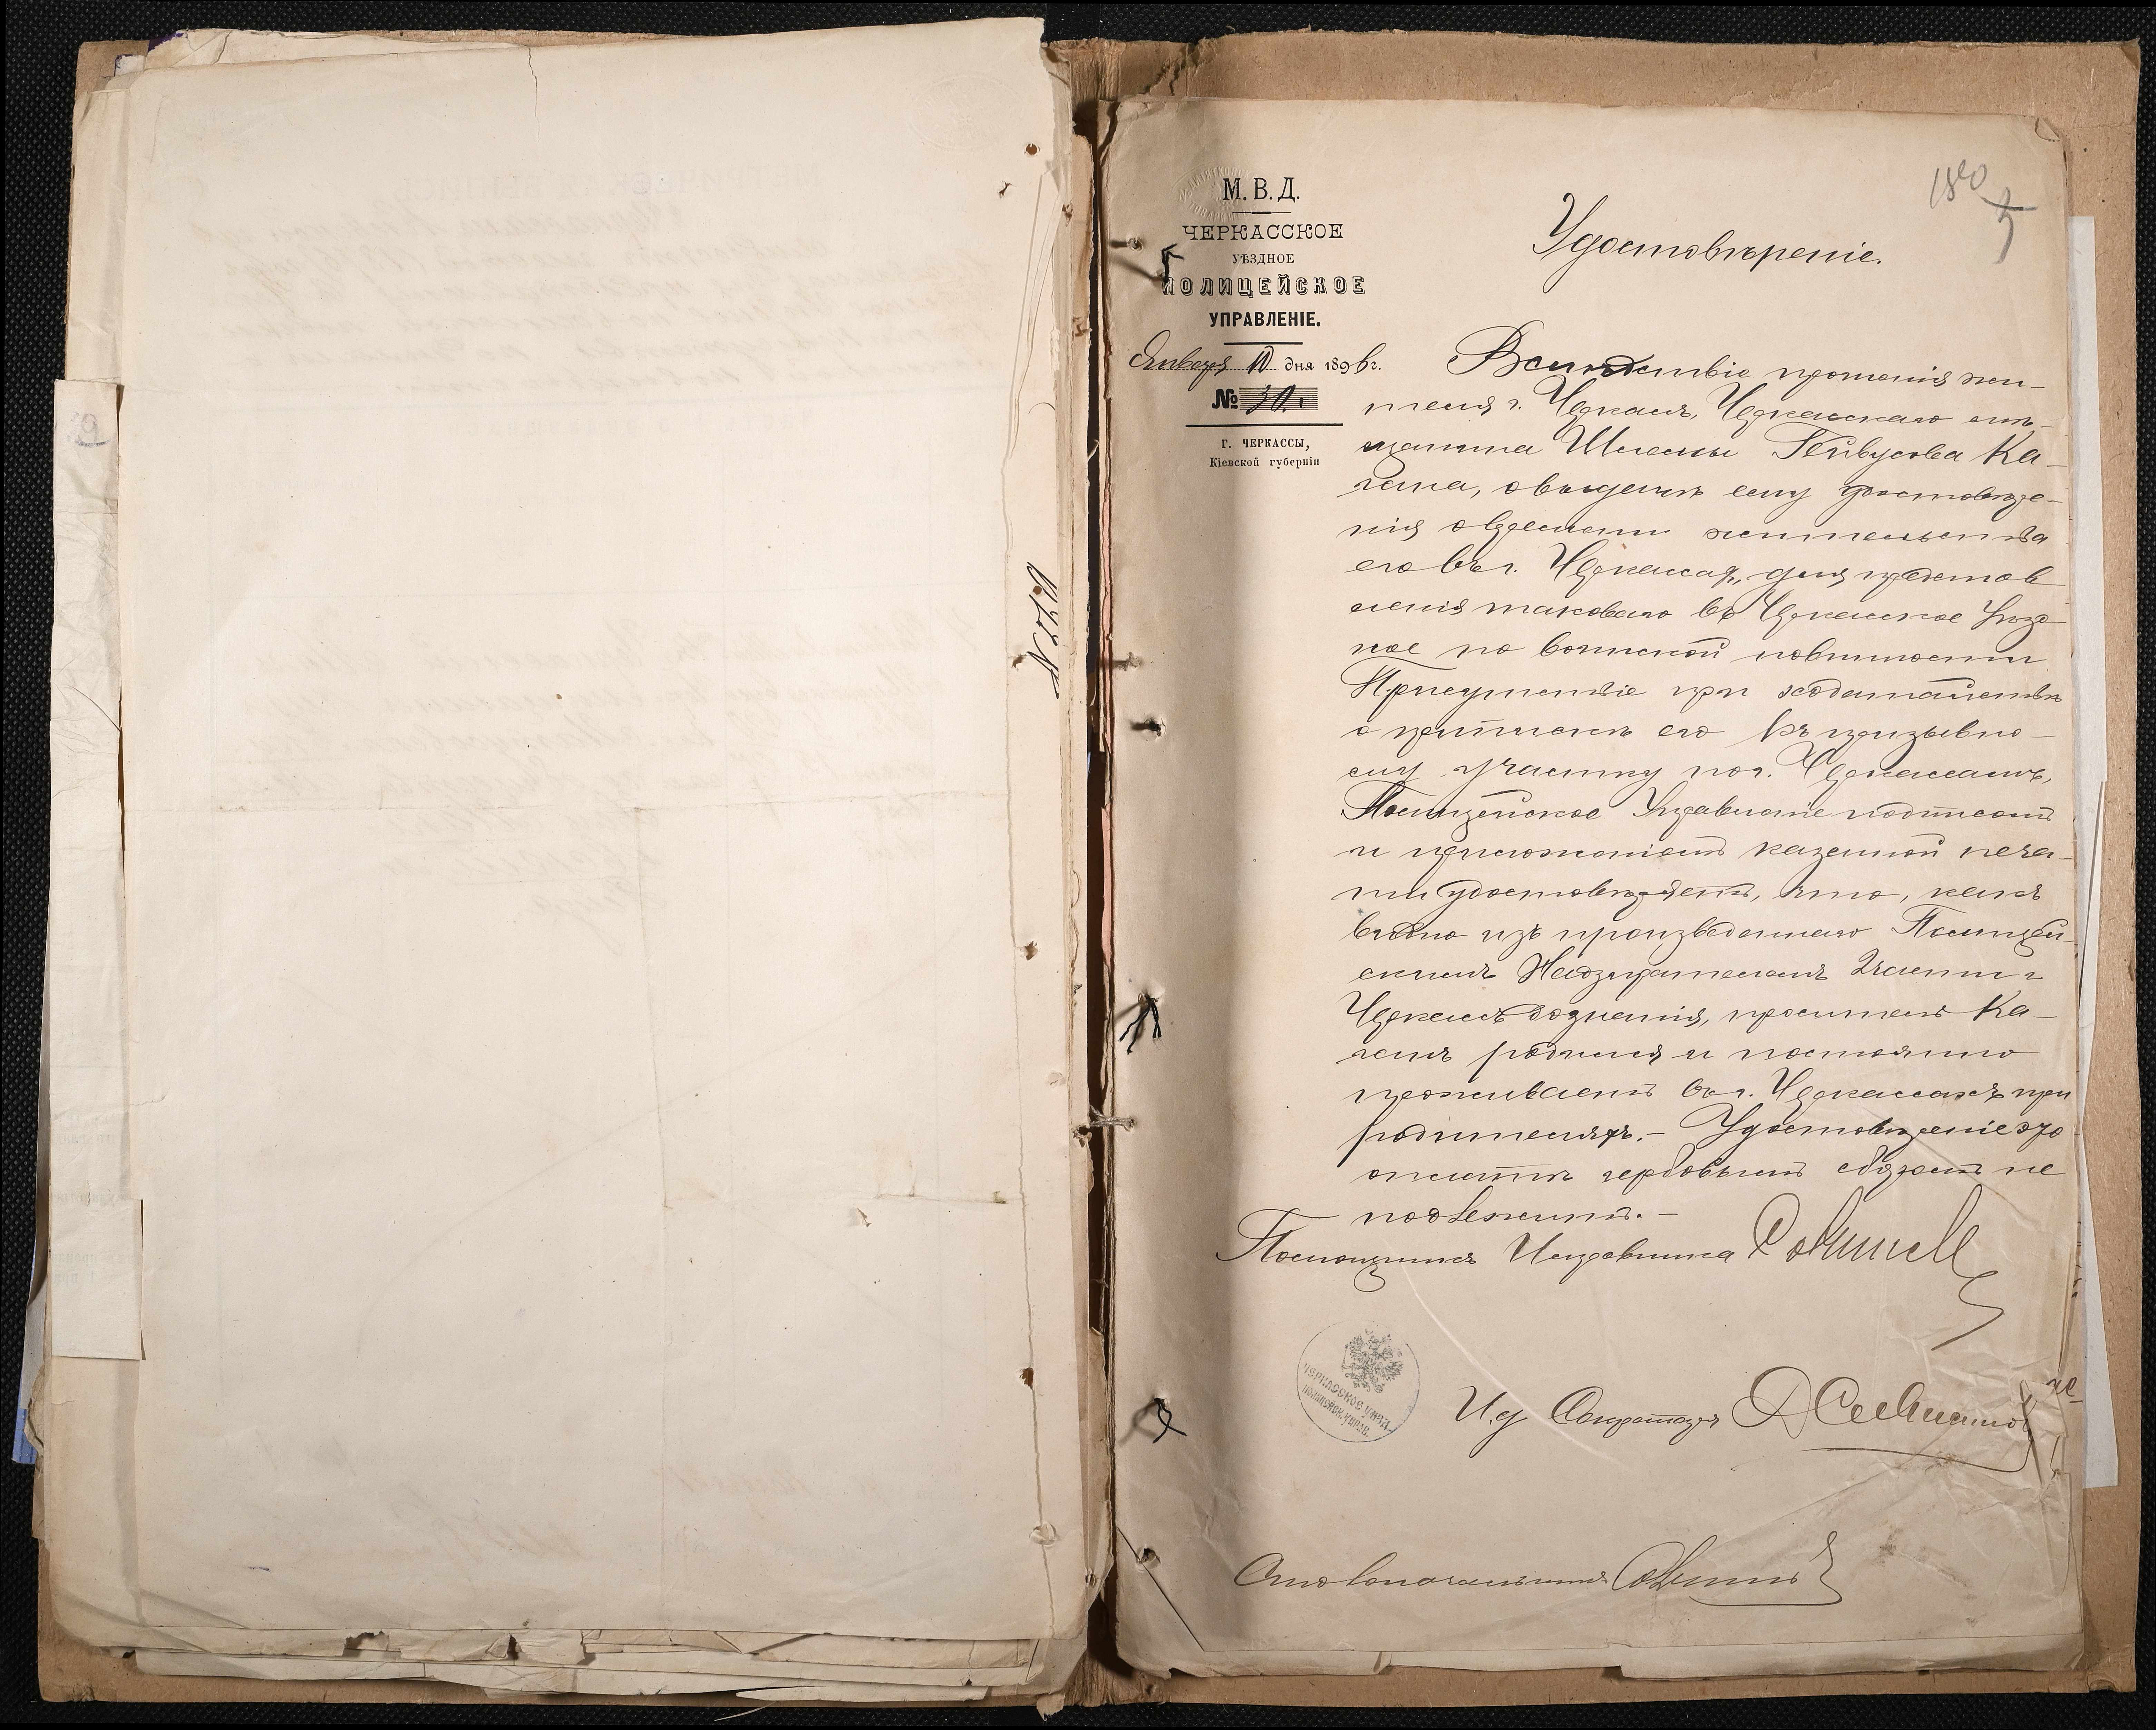 № 520
180
5
М. В. Д.
ЧЕРКАССКОЕ
УѢЗДНОЕ
ПОЛИЦЕЙСКОЕ
УПРАВЛЕНІЕ.
Января 10 дня 1896 г.
№ 30.
Г. ЧЕРКАССЫ,
Кіевской губерніи
Удостовѣреніе.
Вслѣдствіе прошенія жи-
теля г. Черкасъ, Черкасскаго мѣ-
щанина Шлемы Ка-
гана, о выдачѣ ему удостовѣре-
нія о времени жительства
его въ г. Черкассахъ, для представ
ленія таковаго въ Черкасское Уѣзд-
ное по воинской повинности
Присутствіе при ходатайствѣ
о припискѣ его къ призывно-
му участку по г. Черкассамъ,
Полицейское Управленіе подписомъ
и приложеніемъ казенной печа-
ти удостовѣряетъ, что, какъ
видно изъ произведеннаго Полицей-
скимъ Надзирателемъ 2 части г
Черкассъ дознанія, проситель Ка-
ганъ родился и постоянно
проживаетъ въ г. Черкассахъ при
родителяхъ. - Удостовѣреніе это
оплатѣ гербовымъ сборомъ не
подлежитъ. -
Помощникъ Исправника
ЧЕРКАССКОЕ УѢЗД.
ПОЛИЦЕЙСК. УПРАВ.
И. д Секретаря
Столоначальникъ